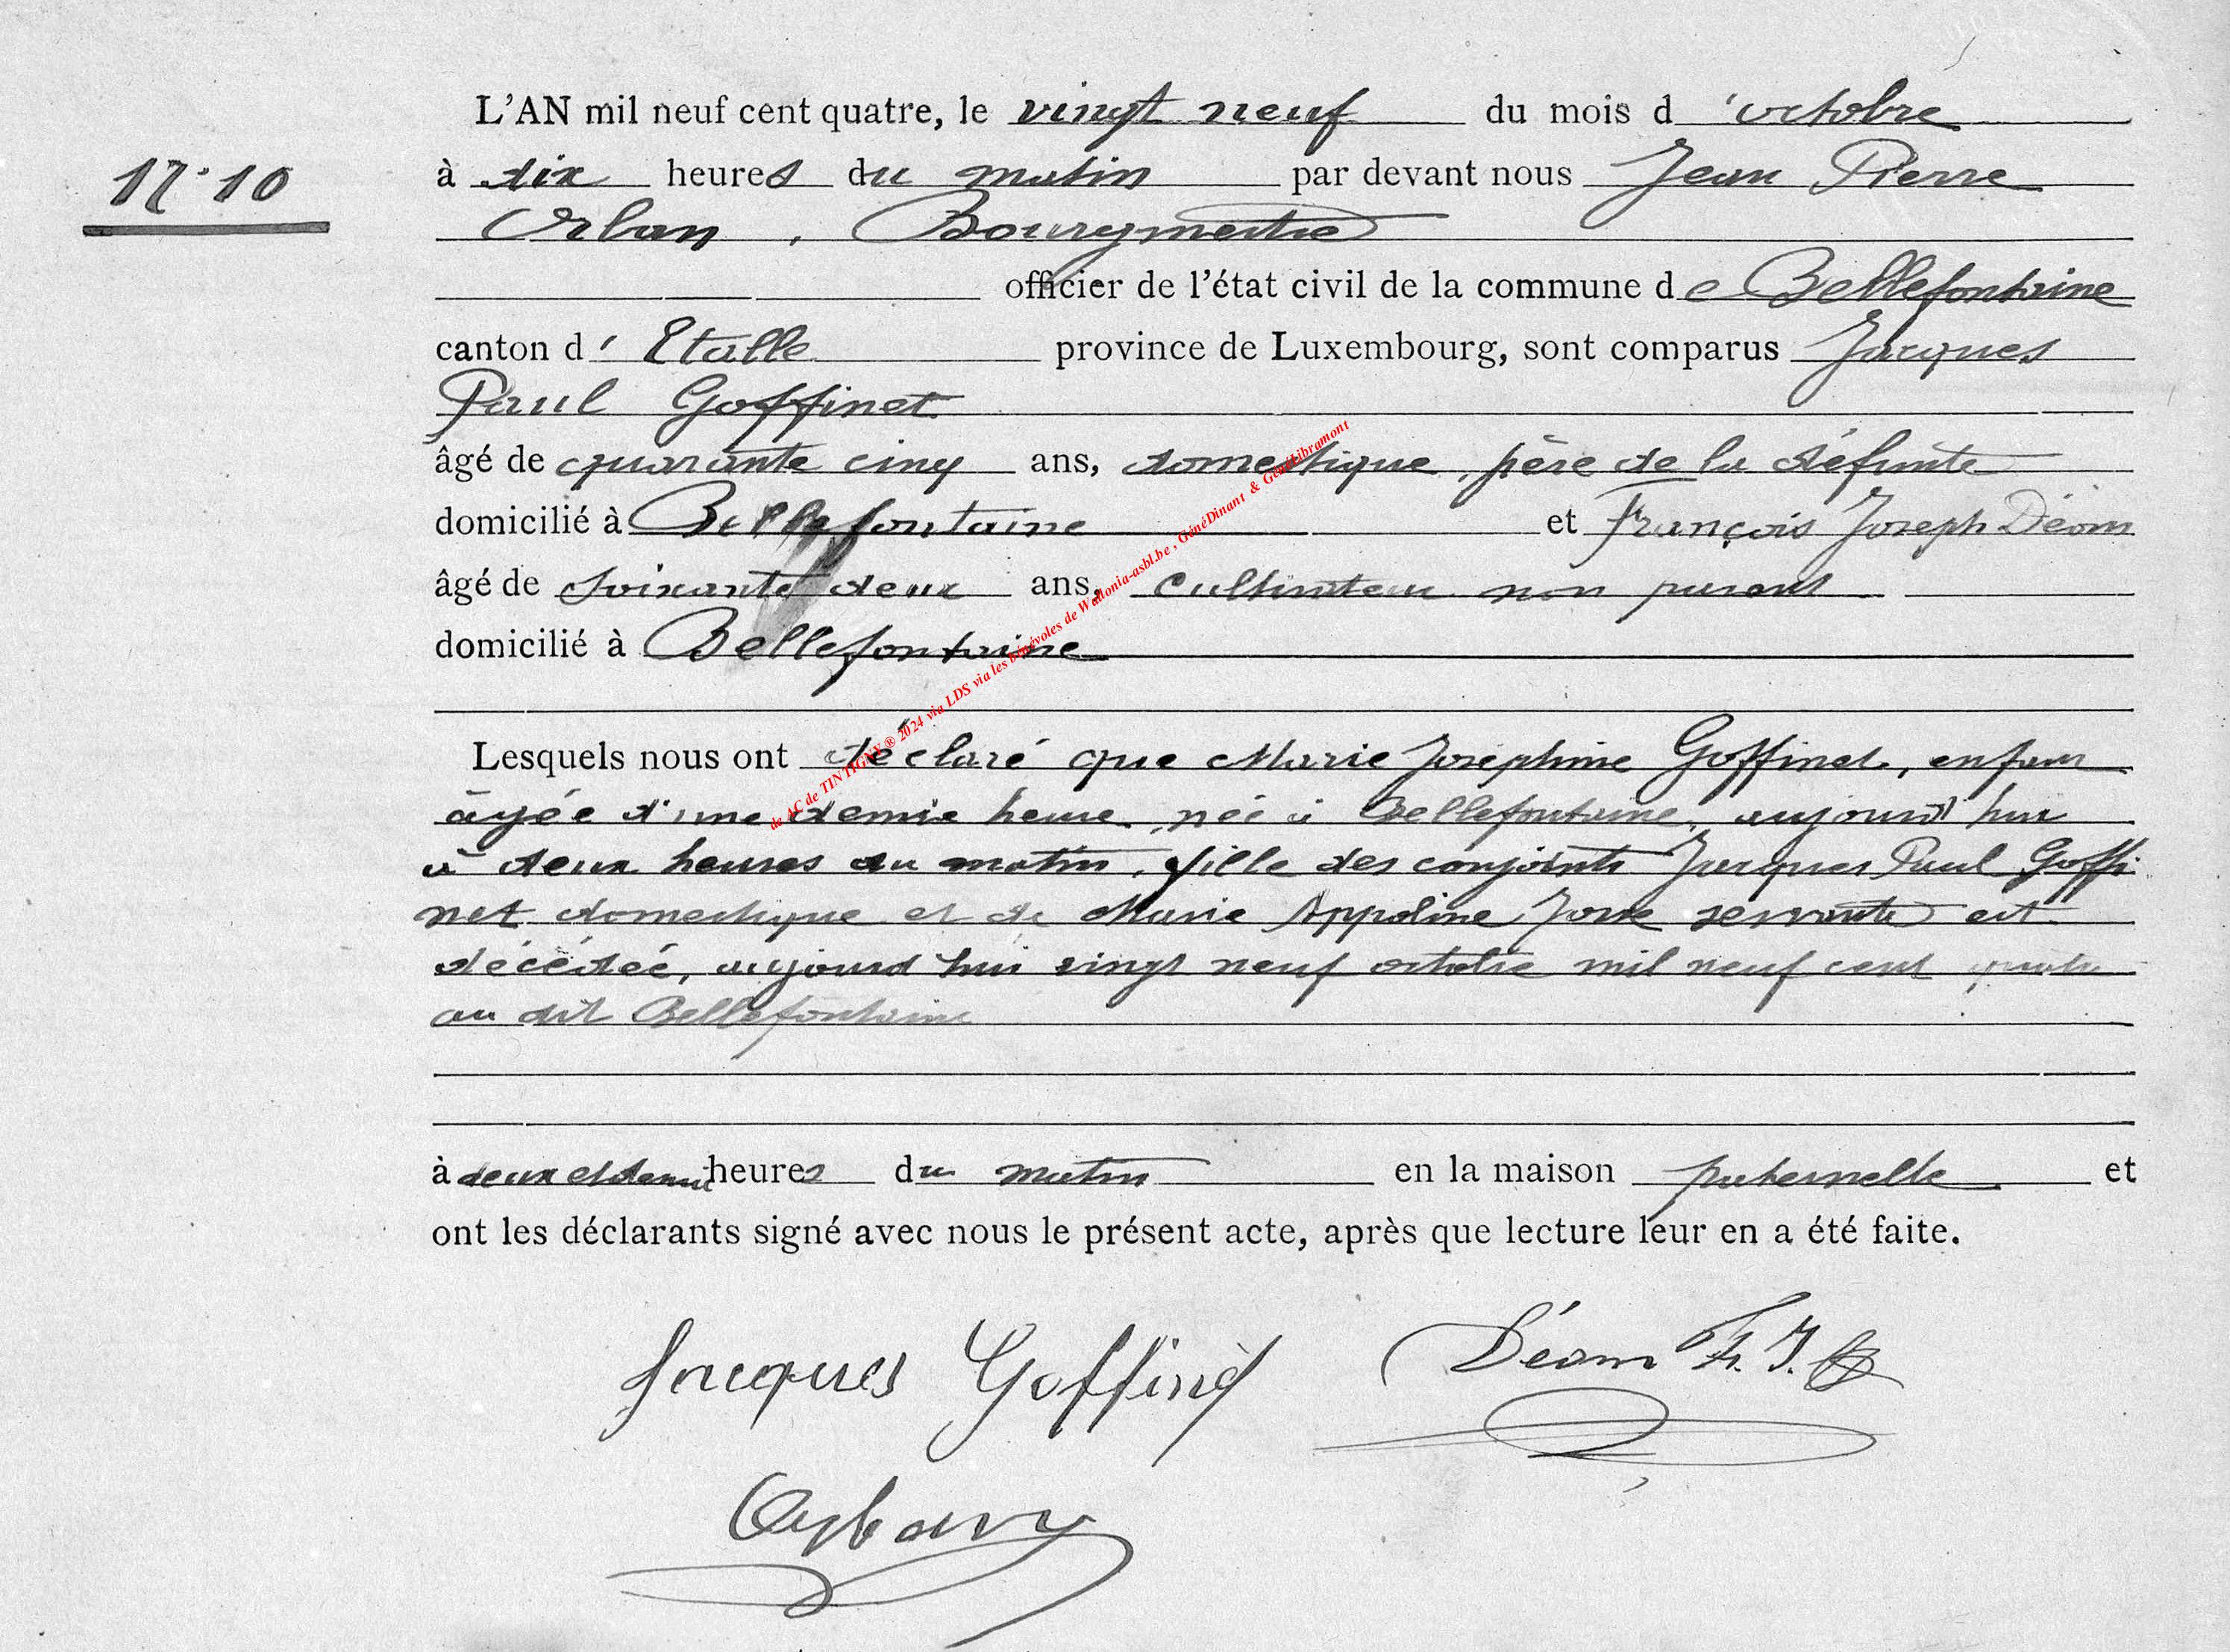 L'AN mil neuf cent quatre, le vingt neuf du mois d'octobre
à dix heures du matin par devant nous Jean Pierre
Orban, Bourgmestre
officier de l'état civil de la commune de Bellefontaine
canton d'Etalle province de Luxembourg, sont comparus Jacques
Paul Goffinet
âgé de quarante cinq ans, domestique, père de la défunte
domicilié à Bellefontaine et François Joseph Déom
âgé de soixante deux ans, cultivateur non parent
domicilié à Bellefontaine
Lesquels nous ont déclaré que Marie Joséphine Goffinet, enfant
âgée d'une demie heure, née à Bellefontaine, aujourd'hui
à deux heures du matin, fille des conjoints Jacques Paul Goffi
net domestique et de Marie Appoline servante est
décédée, aujourd'hui vingt neuf octobre mil neuf cent quatre
au dit Bellefontaine
à deux et demie heures du matin en la maison paternelle et
ont les déclarants signé avec nous le présent acte, après que lecture leur en a été faite.
Jacques Goffinet Déom F. J.
Orban
de AC de TINTIGNY ® 2024 via LDS via les bénévoles de Wallonia-asbl.be, GénéDinant & GénéLibramont